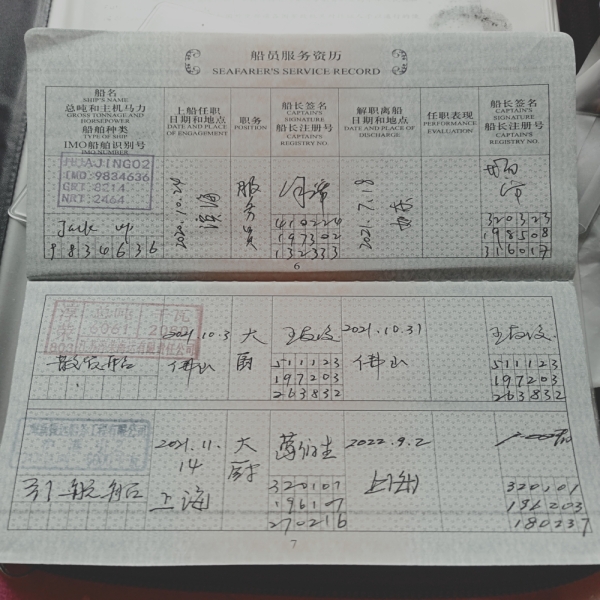 船员服务资历
SEAFARER'S SERVICE RECORD
船名
SHIP'S NAME
总吨和主机马力
GROSS TONNAGE AND
HORSEPOWER
船舶种类
TYPE OF SHIP
IMO船舶识别号
IMO NUMBER
上船任职
日期和地点
DATE AND PLACE
OF ENGAGEMENT
职务
POSITION
船长签名
CAPTAIN'S
SIGNATURE
船长注册号
CAPTAIN'S
REGISTRY NO.
解职离船
日期和地点
DATE AND PLACE OF
DISCHARGE
任职表现
PERFORMANCE
EVALUATION
船长签名
CAPTAIN'S
SIGNATURE
船长注册号
CAPTAIN'S
REGISTRY NO.
HUAJING02
IMO:9834636
GRT:8214
NRT:2464
Jack up
9834636
2020.10.24
滨海
服务员
410224
197302
132333
2021.7.18
320323
198508
316017
6
散货船
2021.10.3
佛山
大厨
511123
197203
263832
2021.10.31
佛山
511123
197203
263832
引航船
2021.11.
14
上海
大厨
320107
270216
2022.9.2
上海
180237
7